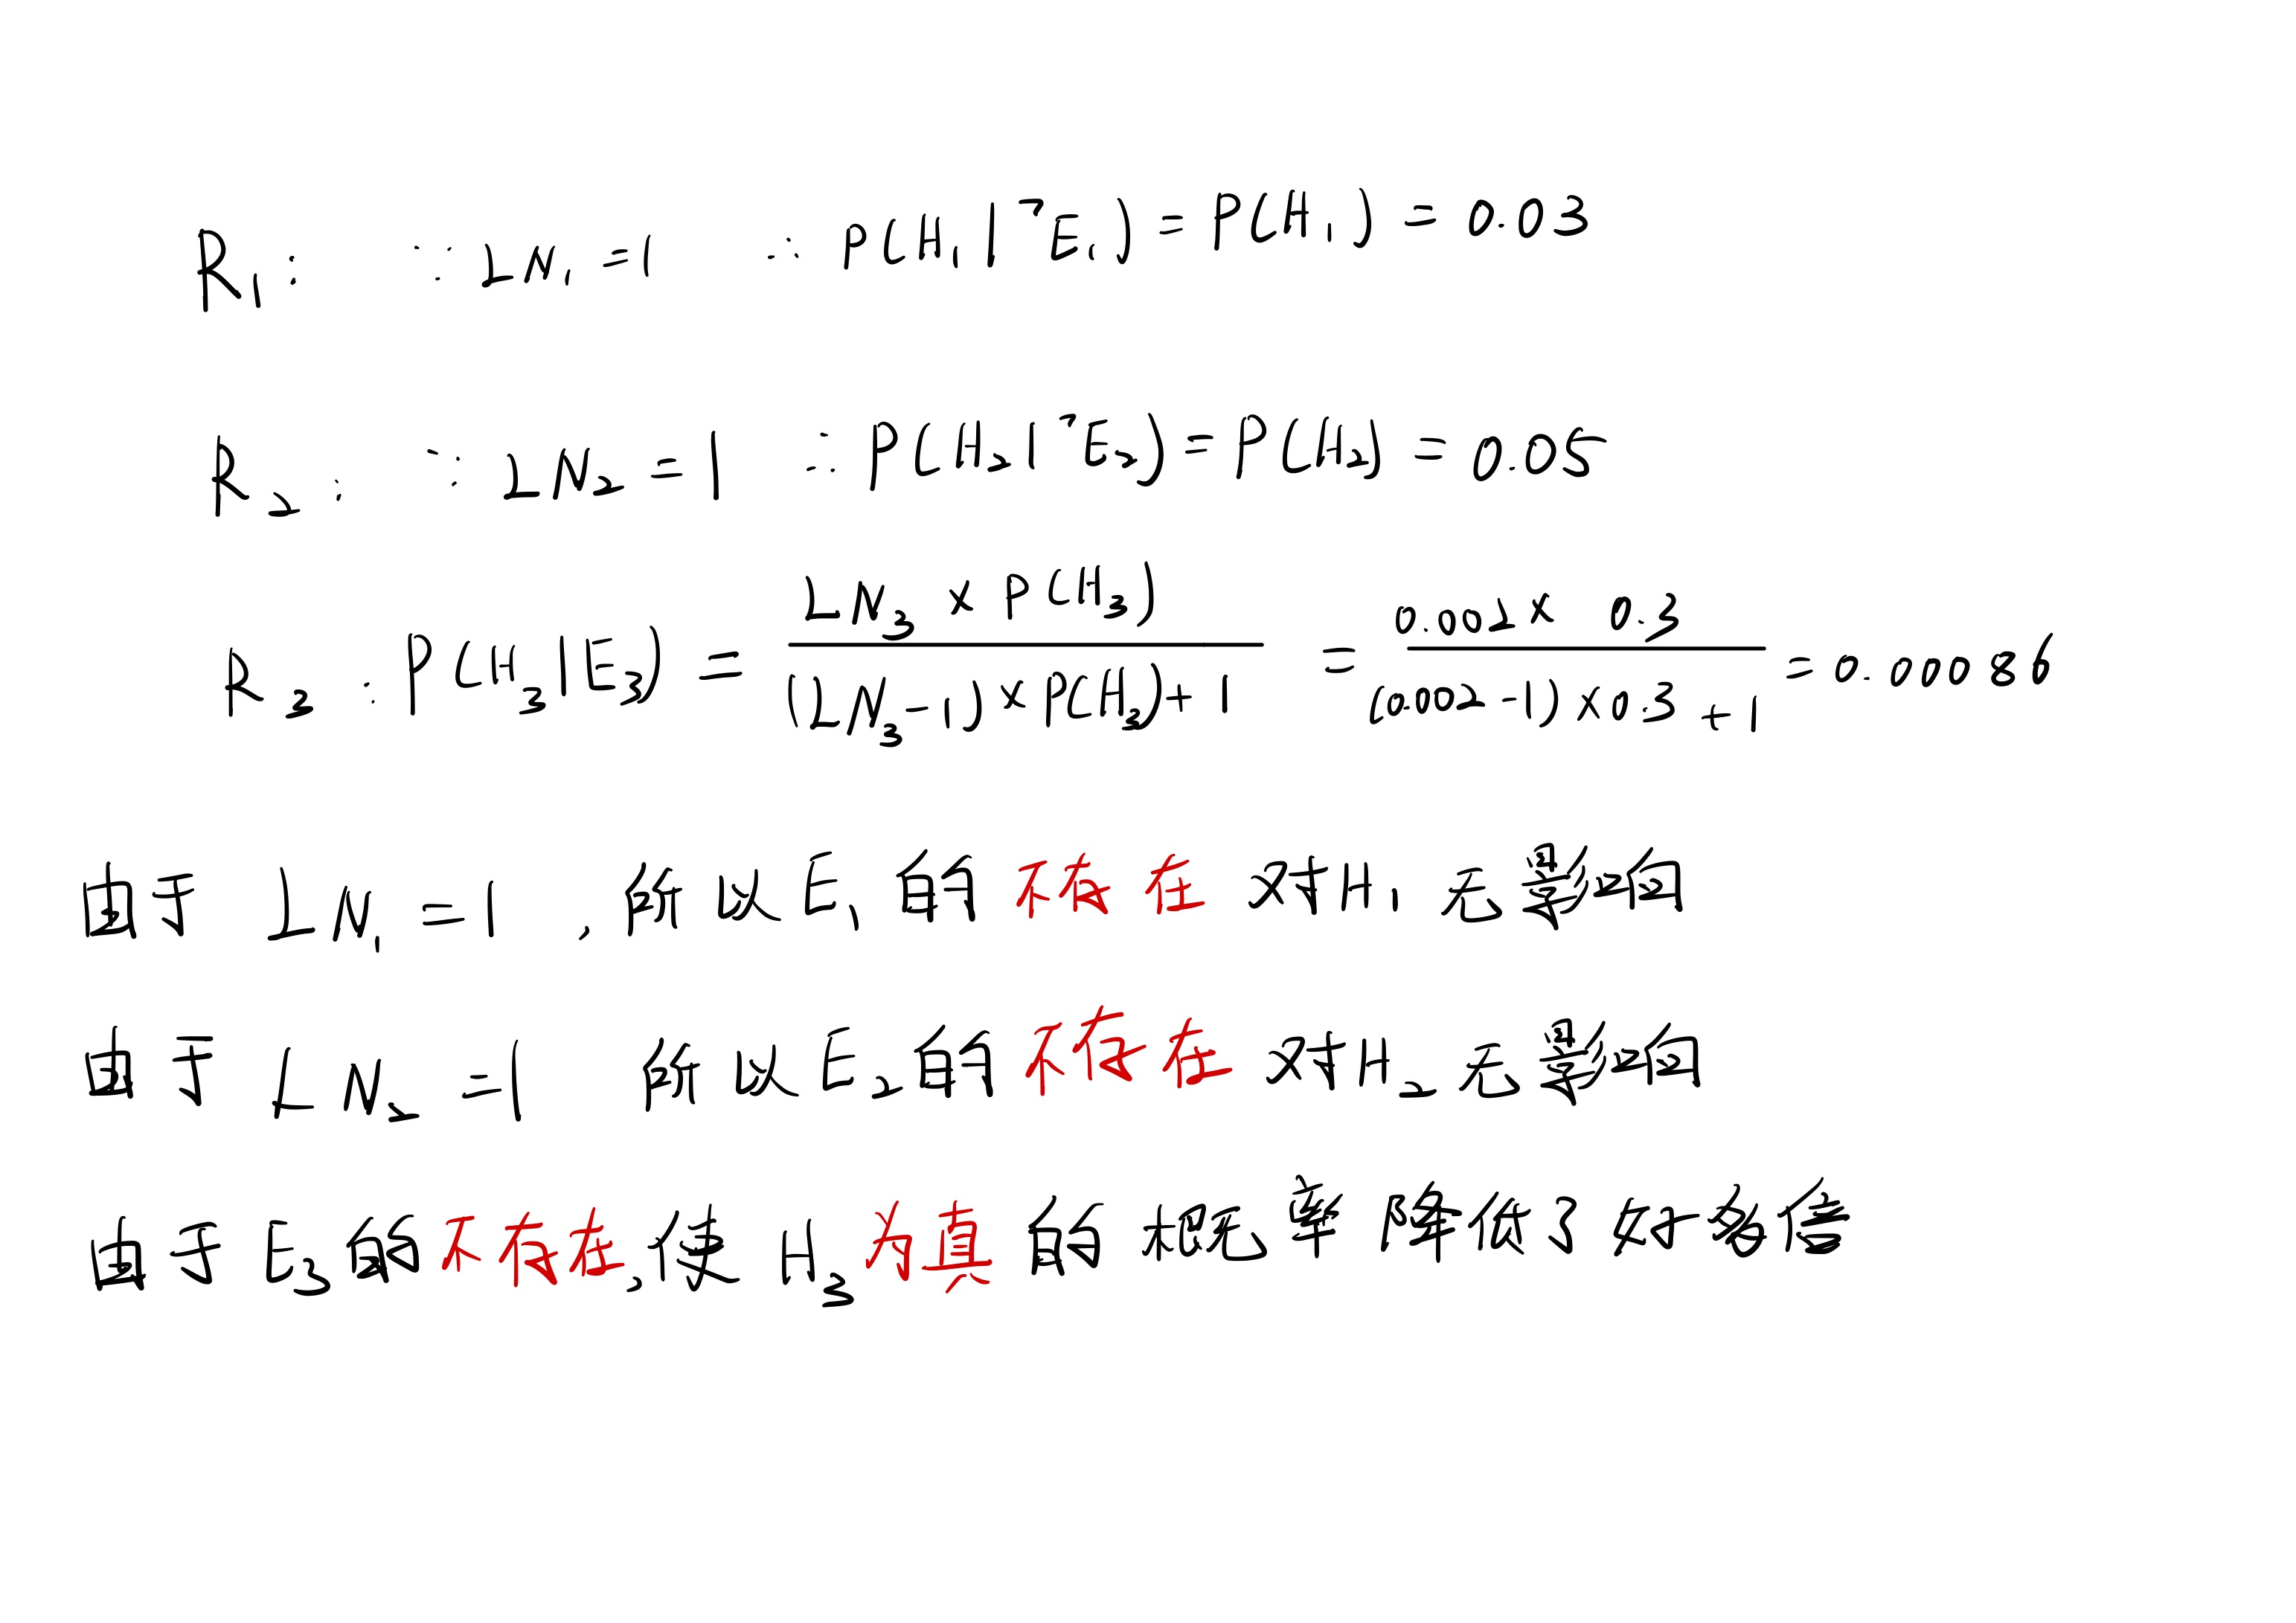 R₁: ∵ LN₁ = 1 ∴ P(H₁|¬E₁) = P(H₁) = 0.03
R₂: ∵ LN₂ = 1 ∴ P(H₂|¬E₂) = P(H₂) = 0.05
R₃: P(H₃|E₃) = (LN₃ × P(H₃)) / ((LN₃ - 1) × P(H₃) + 1) = (0.002 × 0.3) / ((0.002 - 1) × 0.3 + 1) = 0.00086
由于 LN₁ = 1, 所以E₁的不存在对H₁无影响
由于 LN₂ = 1 所以E₂的不存在对H₂无影响
由于E₃的不存在,使H₃为真的概率降低了好多倍